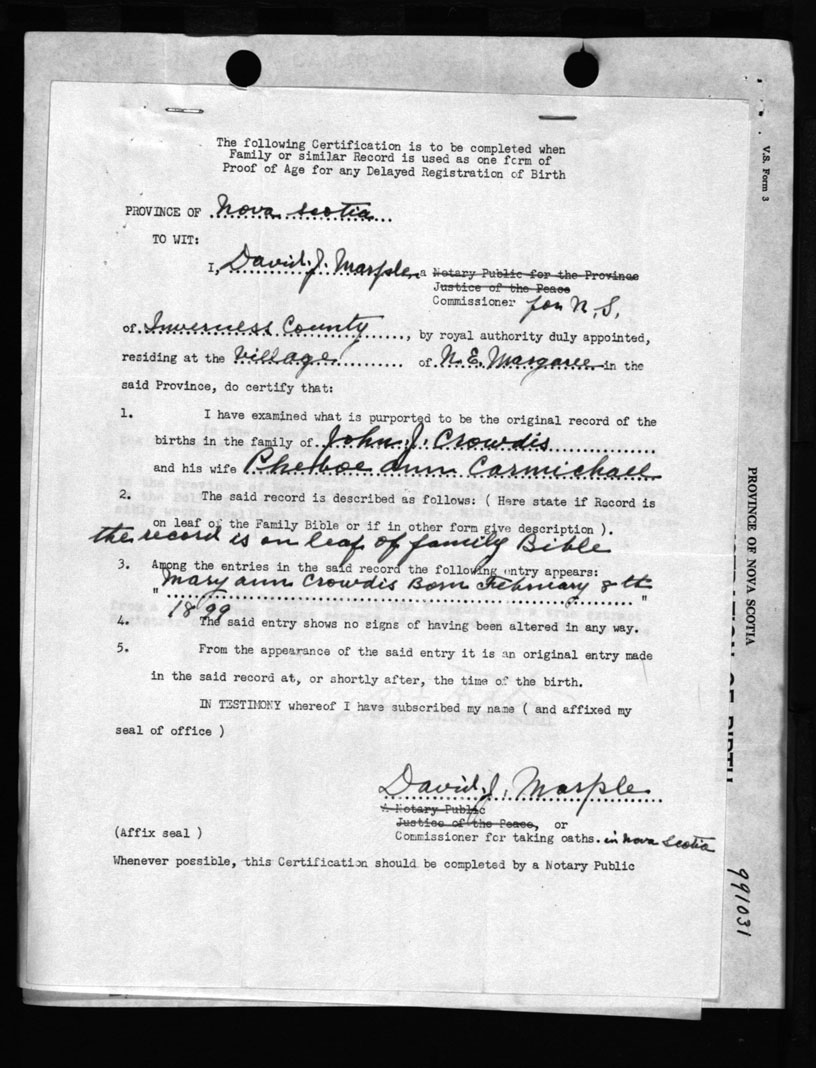 The following Certification is to be completed when
Family or similar Record is used as one form of
Proof of Age for any Delayed Registration of Birth
PROVINCE OF Nova Scotia
TO WIT:
I, David J. Marple a Notary Public for the Province
Justice of the Peace
Commissioner for N.S.
of Inverness County, by royal authority duly appointed,
residing at the Village of N.E. Margaree in the
said Province, do certify that:
1. I have examined what is purported to be the original record of the
births in the family of John J. Crowdis
and his wife Pheboe ann Carmichael
2. The said record is described as follows: ( Here state if Record is
on leaf of the Family Bible or if in other form give description ).
the record is on leaf of family Bible
3. Among the entries in the said record the following entry appears:
"Mary ann Crowdis Born February 8th"
1899
4. The said entry shows no signs of having been altered in any way.
5. From the appearance of the said entry it is an original entry made
in the said record at, or shortly after, the time of the birth.
IN TESTIMONY whereof I have subscribed my name ( and affixed my
seal of office )
David J. Marple
A Notary Public
Justice of the Peace, or
(Affix seal ) Commissioner for taking oaths. in Nova Scotia
Whenever possible, this Certification should be completed by a Notary Public
V.S. Form 3
PROVINCE OF NOVA SCOTIA
OF BIRTH
991031